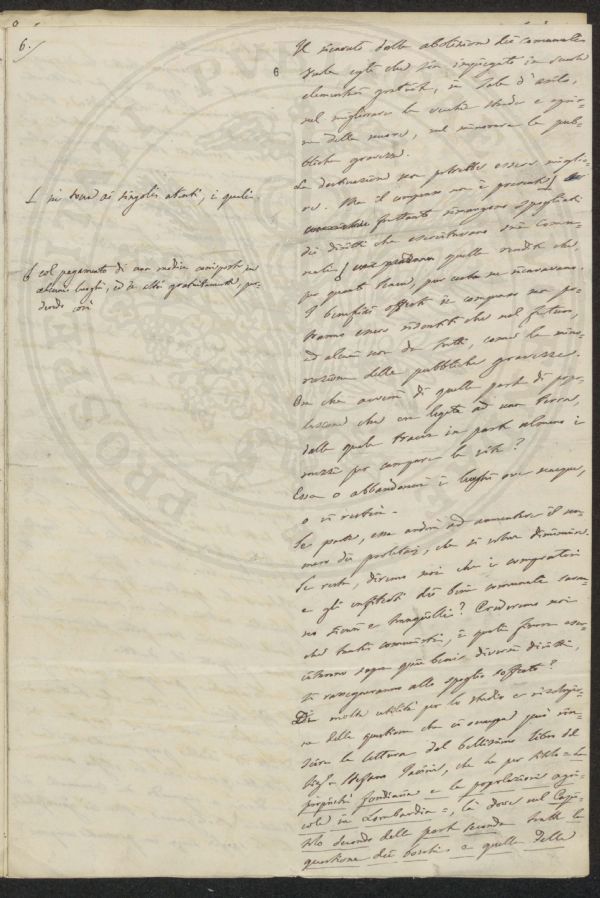 6.
6
Il ricavato dalla abolizione dei comunali
vuole egli che sia impiegato in scuole
elementari gratuite, in Sale d'asilo,
nel migliorare le vecchie strade e aprir-
ne delle nuove, nel minorare le pub-
bliche gravezze.
La destinazione non potrebbe essere miglio-
re. Ma il compenso non è
frattanto rimangono spogliati
dei diritti che esercitavano sui Comu-
nali quelle rendite che,
per quanto tenui, pur certo ne ricavavano.
I benefici offerti in compenso non po-
tranno essere risentiti che nel futuro,
ed alcuni non da tutti, come la mino-
razione delle pubbliche gravezze.
Ora che avverrà di quella parte di popo-
lazione che era legata ad una terra,
dalla quale traeva in parte almeno i
mezzi per campare la vita?
Essa o abbandonerà i luoghi ove nacque,
o vi resterà.
Se parte, essa andrà ad aumentare il nu-
mero dei proletarj, che si voleva diminuire.
Se resta, diremo noi che i compratori
e gli enfiteuti dei beni comunali saran-
no sicuri e tranquilli? Crederemo noi
che tanti comunisti, i quali finora eser-
citarono sopra quei beni diversi diritti,
si rassegneranno allo spoglio sofferto?
Di molta utilità per lo studio e risoluzio-
ne della questione che ci occupa può riu-
scire la lettura del bellissimo libro del
Sig.r Stefano Jacini, che ha per titolo = La
proprietà fondiaria e la popolazione agri-
cola in Lombardia =, là dove nel Capi-
tolo secondo della parte seconda tratta la
questione dei boschi e quella della
ne' beni ai singoli utenti, i quali
col pagamento di una modica corrisposta in
alcuni luoghi, ed in altri gratuitamente,
così